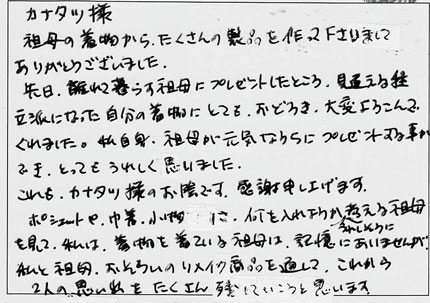 カナタツ様
祖母の着物から、たくさんの製品を作って下さりまして
ありがとうございました。
先日、離れて暮らす祖母にプレゼントしたところ、見違える程
立派になった自分の着物にとても、おどろき、大変よろこんで
くれました。私自身、祖母が元気なうちにプレゼントする事が
でき、とってもうれしく思いました。
これも、カナタツ様のお陰です。感謝申し上げます。
ポシェットや、巾着、小物 に、何を入れようか考える祖母
を見て、私は、着物を着ている祖母は、記憶にありませんが、
私と祖母、おそろいのリメイク商品を通して、これから
2人の思い出をたくさん残していこうと思います。